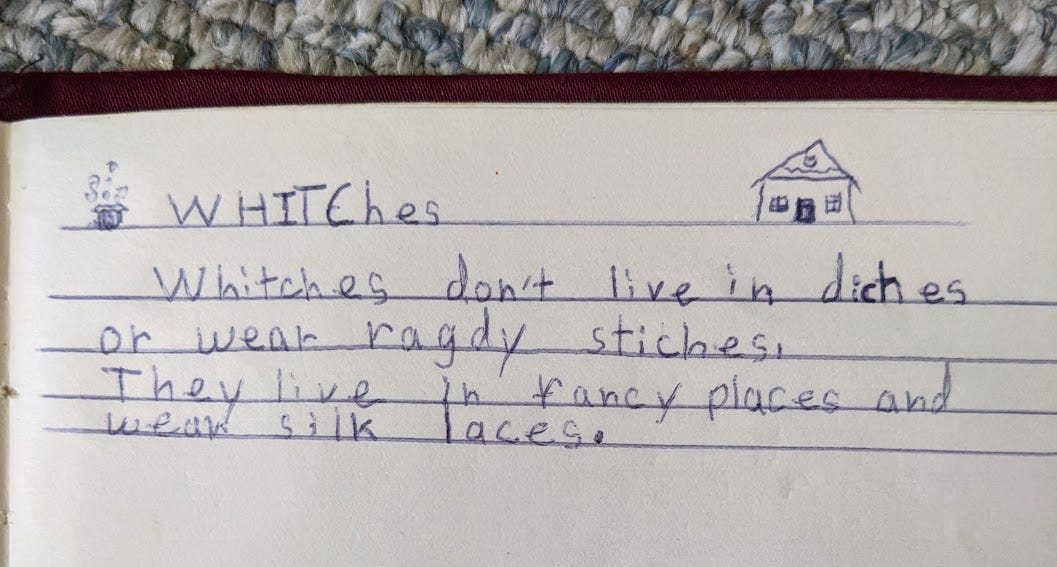 WHITChes
Whitches don't live in diches
or wear ragdy stiches.
They live in fancy places and
wear silk laces.